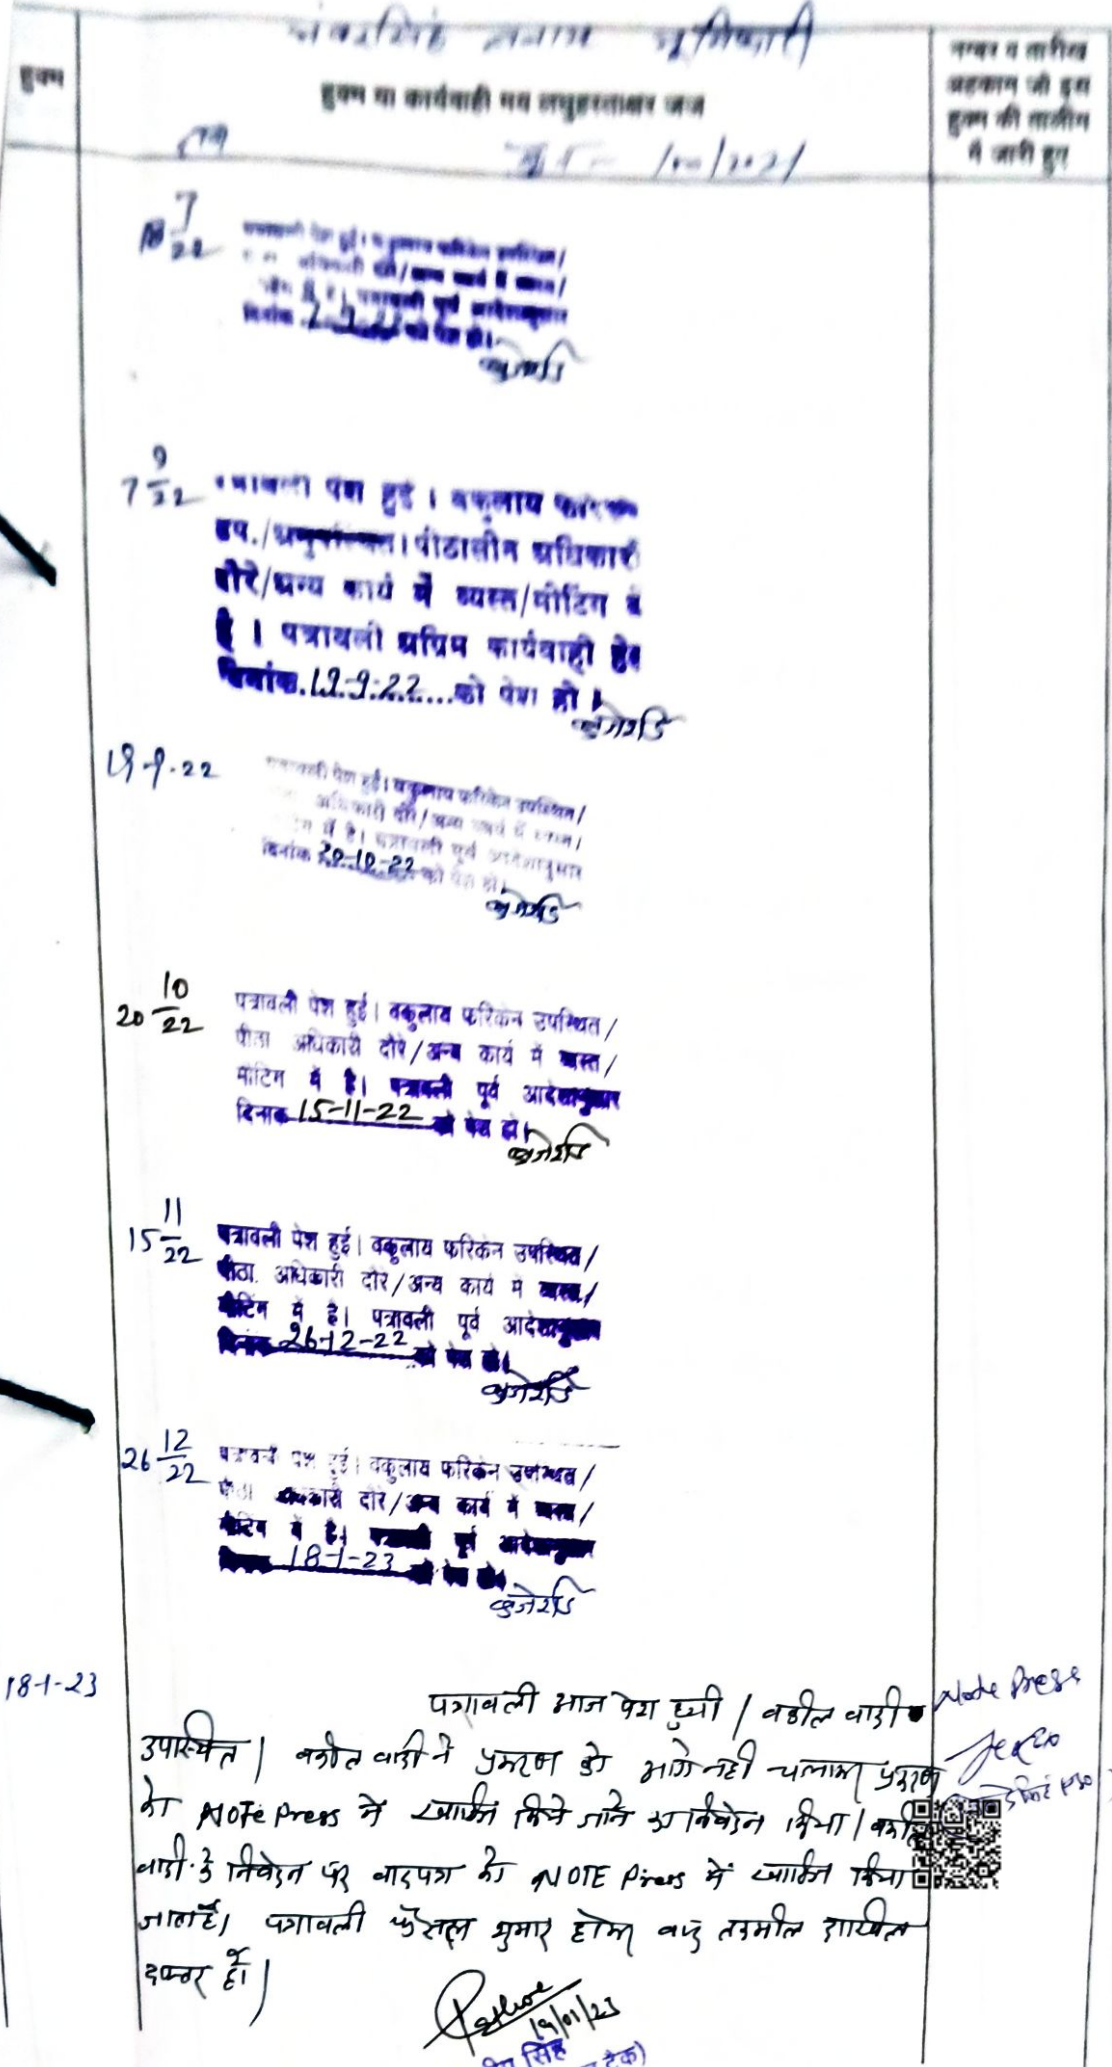 हुक्म
हुक्म या कार्यवाही मय लघुहस्ताक्षर जज
नम्बर व तारीख
अहकाम जो इस
हुक्म की तामील
में जारी हुए
18 7/22
पत्रावली पेश हुई। वकुलाय फरिकेन उपस्थित/
अधिकारी दौरे/अन्य कार्य में व्यस्त/
में है। पत्रावली पूर्व आदेशानुसार
दिनांक 7-9-22 को पेश हो।
7 9/22
पत्रावली पेश हुई । वकुलाय फरिकेन
उप./अनुपस्थित। पीठासीन अधिकारी
दौरे/अन्य कार्य में व्यस्त/मीटिंग में
है । पत्रावली अग्रिम कार्यवाही हेतु
दिनांक.19-9-22...को पेश हो ।
19-9-22
पत्रावली पेश हुई। वकुलाय फरिकेन उपस्थित/
अधिकारी दौरे/अन्य कार्य में व्यस्त/
में है। पत्रावली पूर्व आदेशानुसार
दिनांक 20-10-22 को पेश हो।
20 10/22
पत्रावली पेश हुई। वकुलाय फरिकेन उपस्थित/
पीठा अधिकारी दौरे/अन्य कार्य में व्यस्त/
मीटिंग में है। पत्रावली पूर्व आदेशानुसार
दिनांक 15-11-22 को पेश हो।
15 11/22
पत्रावली पेश हुई। वकुलाय फरिकेन उपस्थित/
पीठा. अधिकारी दौरे/अन्य कार्य में व्यस्त/
मीटिंग में है। पत्रावली पूर्व आदेशानुसार
दिनांक 26-12-22 को पेश हो।
26 12/22
पत्रावली पेश हुई। वकुलाय फरिकेन उपस्थित/
पीठा अधिकारी दौरे/अन्य कार्य में व्यस्त/
मीटिंग में है। पत्रावली पूर्व आदेशानुसार
दिनांक 18-1-23 को पेश हो।
18-1-23
पत्रावली आज पेश हुयी। वकील वादी
Note Press
उपस्थित। वकील वादी ने प्रकरण को आगे नहीं चलाकर प्रकरण
को NOTE Press में खारिज किये जाने का निवेदन किया। वकील
वादी के निवेदन पर वादपत्र को NOTE Press में खारिज किया
जाता है। पत्रावली फैसल शुमार होकर बाद तकमील दाखिल
दफ्तर हो।
19/01/23
सिंह